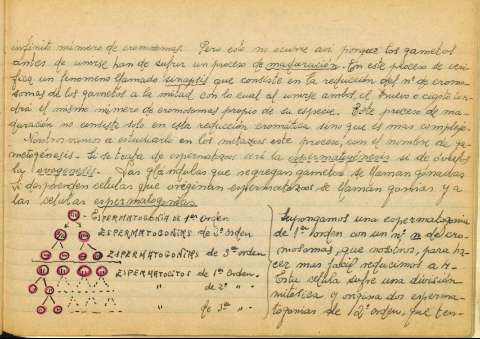 infinito número de cromosomas. Pero esto no ocurre así porque los gametos
antes de unirse han de sufrir un proceso de maduración. En este proceso se veri-
fica un fenómeno llamado sinapsis que consiste en la reducción del nº de cromo-
somas de los gametos a la mitad con lo cual al unirse ambos el huevo o cigoto ten-
drá el mismo número de cromosomas propio de su especie. Este proceso de ma-
duración no consiste solo en esta reducción cromática sino que es mas complejo.
Nosotros vamos a estudiarlo en los metazoos este proceso, con el nombre de ga-
metogénesis. Si se trata de espermatozoos será la espermatogénesis si de óvulos
la ovogenesis. Las glándulas que segregan gametos se llaman gónadas
Si desprenden células que originan espermatozoos se llaman gonias y a
las células espermatogonias
- ESPERMATOGONIA DE 1er ORDEN
ESPERMATOGONIAS de 2º orden
ESPERMATOGONIAS de 3er orden
ESPERMATOCITOS de 1er Orden.
" de 2º "
" de 3er "
Supongamos una espermatogonia
de 1er orden con un nº n de cro-
mosomas, que nosotros, para ha-
cer mas facil reducimos a 4.
Esta célula sufre una división
mitótica y origina dos esperma-
togonias de 2º orden, que ten-